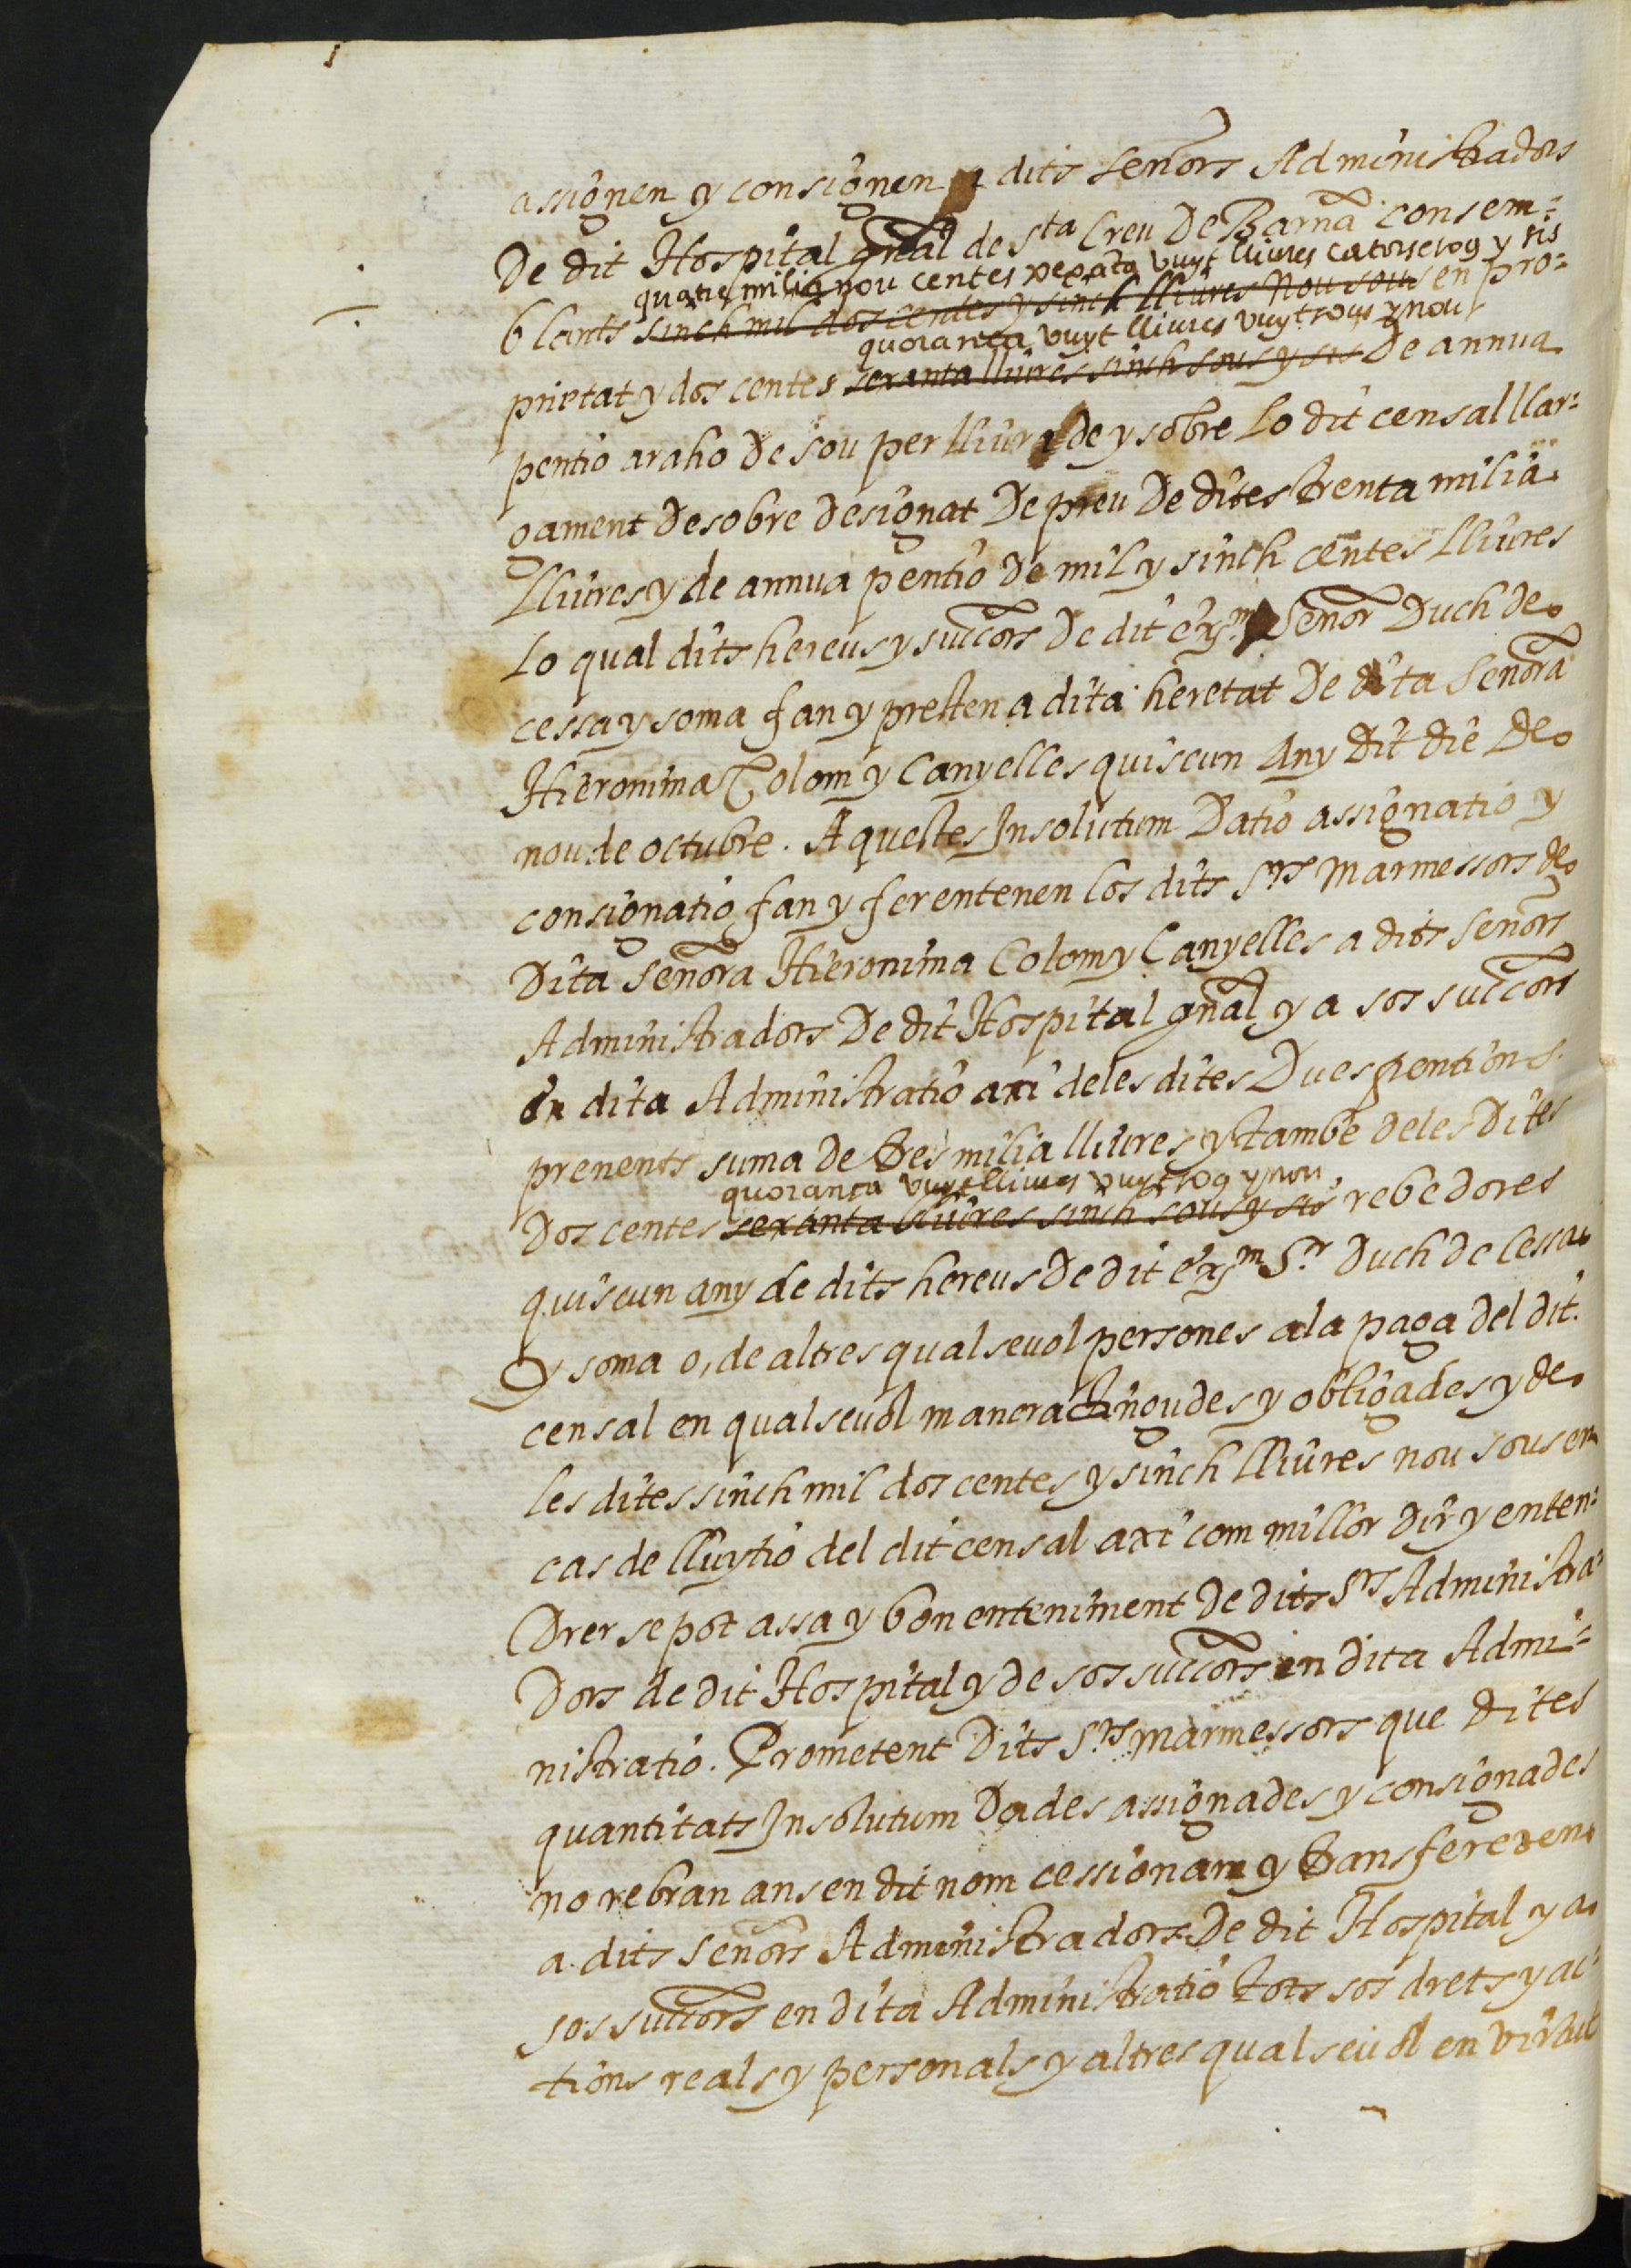 assignen y consignen a dits senors Administradors
De dit Hospital gnãl de Sta Creu De Barna consem=
quatre milia nou centes xexata vuyt lliures catorse sog y sis
blants sinch mil doscentes y sinch lliures Nou sous en pro=
quoranta vuyt lliures vuyt sous y nou
prietat y dos centes sexanta lliures sinch sous y sis De annua
pentio araho De sou per lliura de y sobre Lo dit censal llar=
gament De sobre designat De preu De dites trenta milia
Lliures y de annua pentio de mil y sinch centes Lliures
Lo qual dits hereus y succors De dit exm Senor Duch de
cessa y soma fan y presten a dita heretat De dita Senora
Hieronima Colom y Canyelles quiscun Any Dit die De
nou de octubre. Aquestes Insolutum Datio assignatio y
consignatio fan y fer entenen los dits Srs Marmessors de
Dita Senora Hieronima Colom y Canyelles a dits Senors
Administradors De dit Hospital gnãl y a sos succors
en dita Administratio axi deles dites Dues pentions
prenents suma de tres milia lliures y tambe deles Dites
quoranta vuyt lliures vuyt sog y nou
Dos centes sexanta lliures sinch sous y sis rebedores
quiscun any de dits hereus De dit exm Sr Duch de Cessa
y soma o, de altres qualsevol persones ala paga del dit
censal en qualsevol manera tingudes y obligades y de
les dites sinch mil dos centes y sinch lliures nou sous en
cas de lluytio del dit censal axi com millor Dir y enten=
Drer se pot assa y bon enteniment De dits Srs Administra=
Dors de dit Hospital y de sos succors en dita Admi=
nistratio. Prometent Dits Srs Marmessors que Dites
quantitats Insolutum Dades assignades y consignades
no rebran ans en dit nom cessionam y transfereren
a dits Senors Administradors De dit Hospital y a
sos succors en dita Administratio tots sos drets y ac=
tions reals y personals y altres qualseuol en virtut